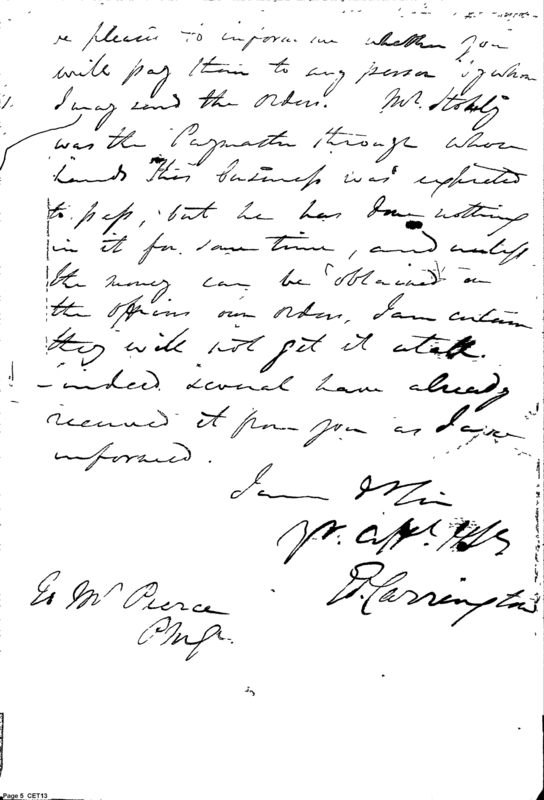 be pleased to inform me whether you
will pay them to any person by whom
I may send the orders. Mr. Stokely
was the Paymaster through whose
hands this business was expected
to pass, but he has done nothing
in it for some time, and unless
the money can be obtained on
the officers own orders, I am certain
they will not get it atall.
-indeed several have already
received it from you as I am
informed.
I am D Sir
yr.
E. Carrington
To Mr Pierce
P M Gl.
Page 5 CET13